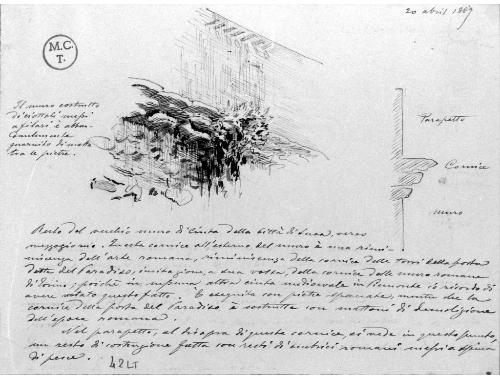 20 abril 1889
M.C.
T.
Il muro costrutto
di ciottoli messi
a filari è abbon-
dantemente
guarnito di malta
tra le pietre.
Parapetto
Cornice
muro
Resto del vecchio muro di cinta della città di Susa, verso
mezzogiorno. Questa cornice all'esterno del muro è una remi-
niscenza dell'arte romana, reminiscenza della cornice delle torri della porta
detta del Paradiso, imitazione, a sua volta, della cornice delle mura romane
di Torino, poiché in nessuna altra cinta medioevale in Piemonte io ricordo di
avere notato questo fatto. È eseguita con pietre spaccate, mentre che la
cornice della porta del Paradiso è costrutta con mattoni di demolizione
dell'epoca romana.
Nel parapetto, al disopra di questa cornice, si vede in questo punto,
un resto di costruzione fatta con resti di mattoni romani messi a spina
di pesce.
42 LT